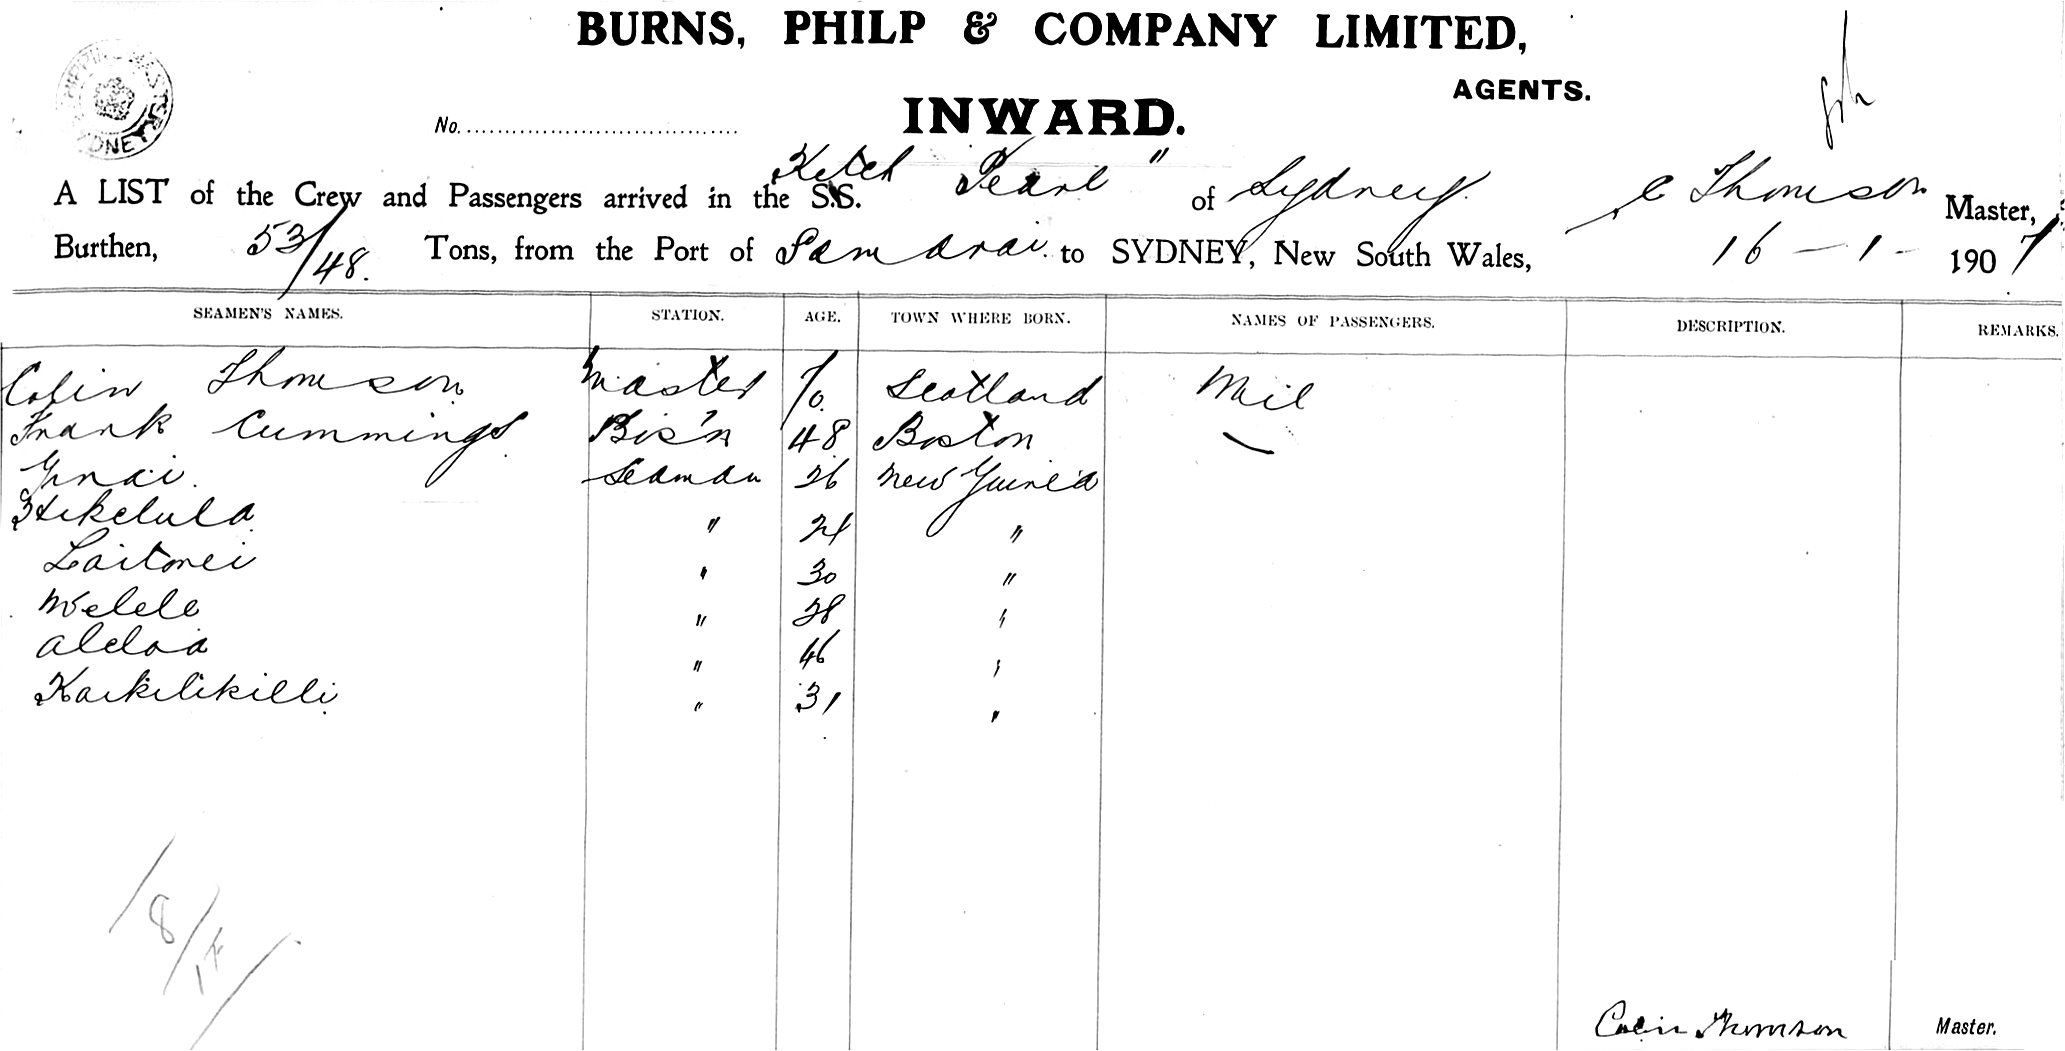 BURNS, PHILP & COMPANY LIMITED,
AGENTS.
No. INWARD.
A LIST of the Crew and Passengers arrived in the S.S. Ketch "Pearl" of Sydney C Thomson Master,
Burthen, 53/48. Tons, from the Port of Samarai to SYDNEY, New South Wales, 16 - 1 - 1907
SEAMEN'S NAMES. STATION. AGE. TOWN WHERE BORN. NAMES OF PASSENGERS. DESCRIPTION. REMARKS.
Colin Thomson Master 70 Scotland Nil
Frank Cummings Bos'n 48 Boston
Seaman 26 New Guinea
" 24 "
Laitonei " 30 "
Welele " 28 "
" 46 "
Kaikilikilli " 31 "
Colin Thomson Master.